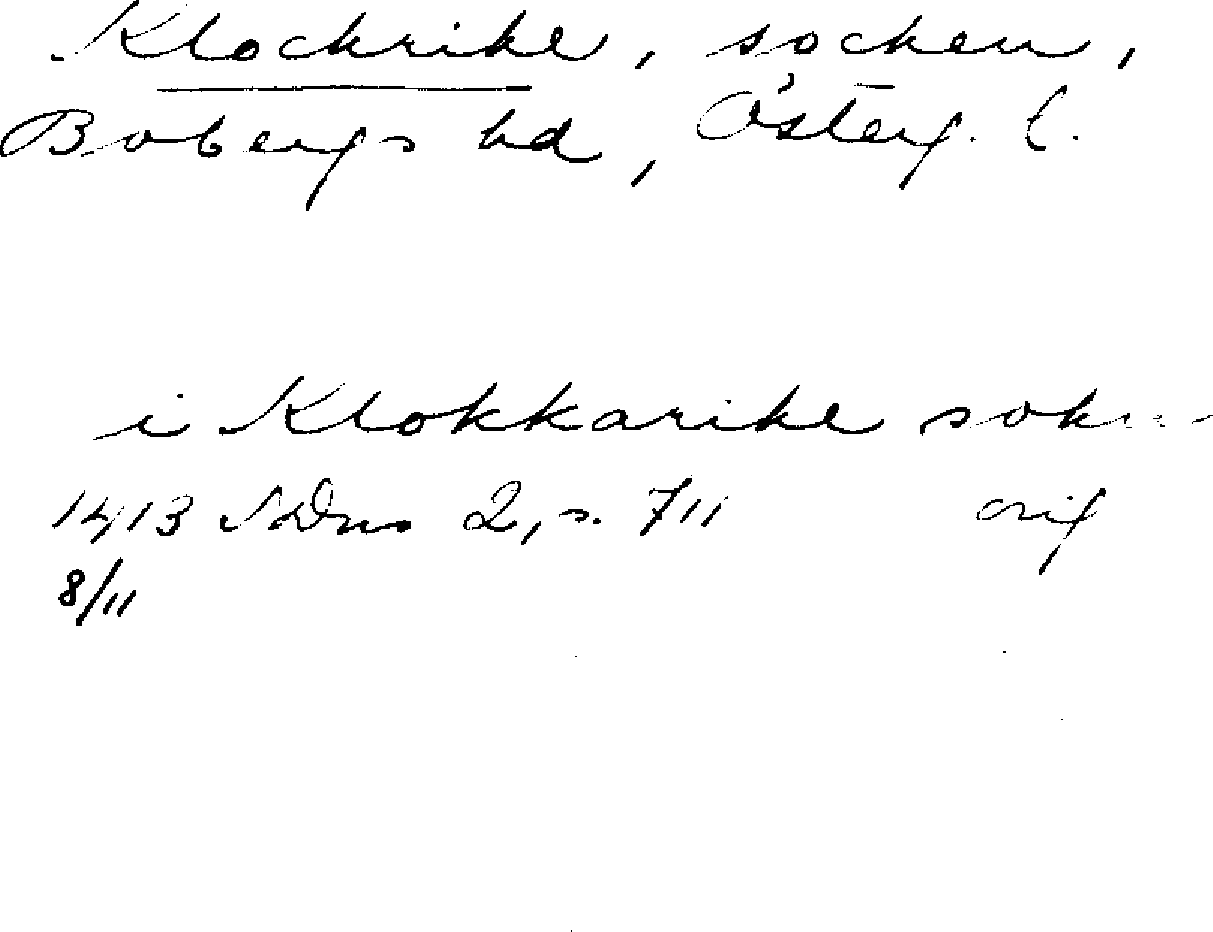 Klockrike, socken,
Bobergs hd, Österg. l.
i Klokkarike sokn
1413 SDns 2, s. 711 orig
8/11